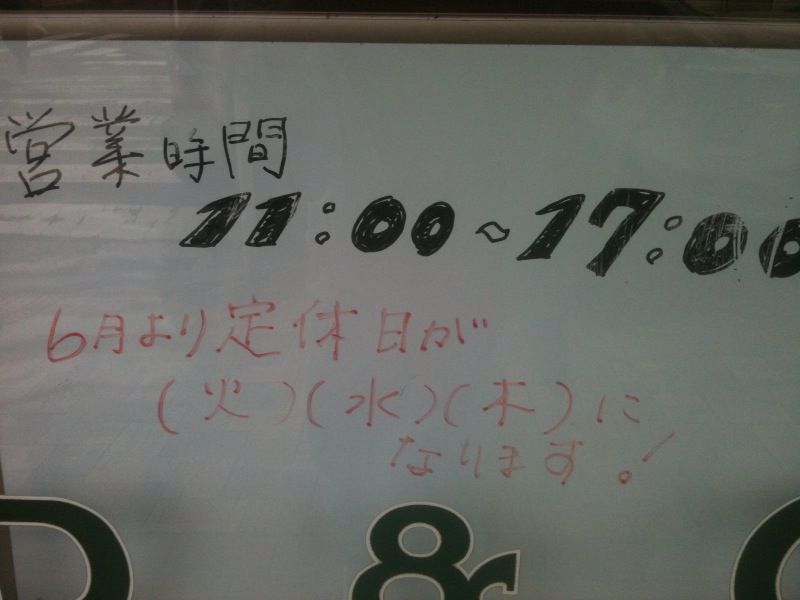 営業時間
11:00~17:00
6月より定休日が
(火)(水)(木)に
なります!
&